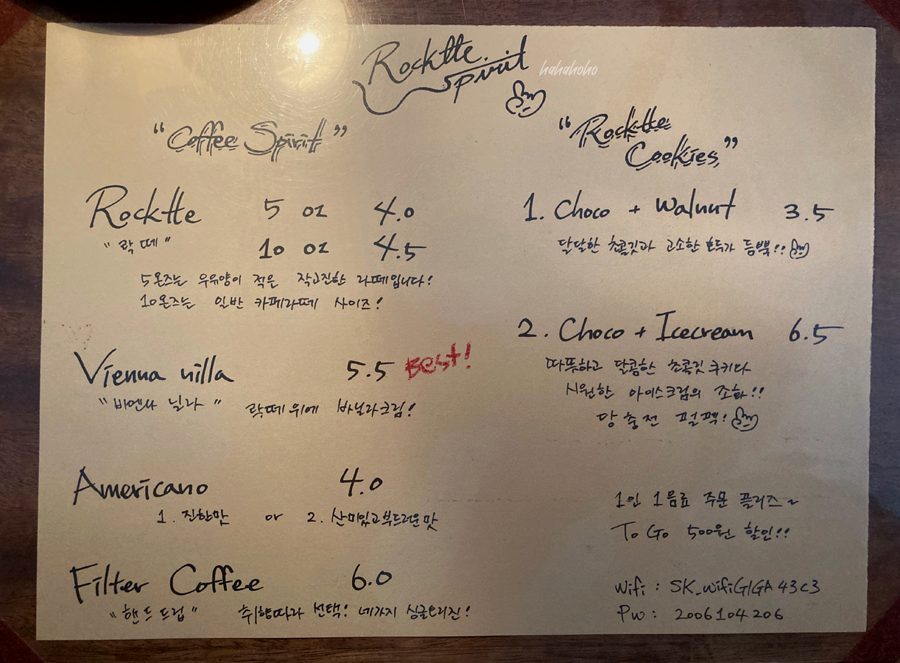 Rocktte Spirit
hahahoho
"Coffee Spirit"
Rocktte 5 oz 4.0
"락떼" 10 oz 4.5
5온즈는 우유양이 적은 작고진한 라떼입니다!
10온즈는 일반 카페라떼 사이즈!
Vienna nilla 5.5 Best!
"비엔나 닐라" 락떼 위에 바닐라크림!
Americano 4.0
1. 진한맛 or 2. 산미있고부드러운맛
Filter Coffee 6.0
"핸드드립" 취향따라 선택! 네가지 싱글오리진!
"Rocktte
Cookies"
1. Choco + Walnut 3.5
달달한 초콜릿과 고소한 호두가 듬뿍!!
2. Choco + Icecream 6.5
따뜻하고 달콤한 초콜릿 쿠키와
시원한 아이스크림의 조화!!
당 충전 펄펙!
1인 1음료 주문 플리즈~
To Go 500원 할인!!
Wifi : SK_WifiGIGA43C3
Pw : 2006104206